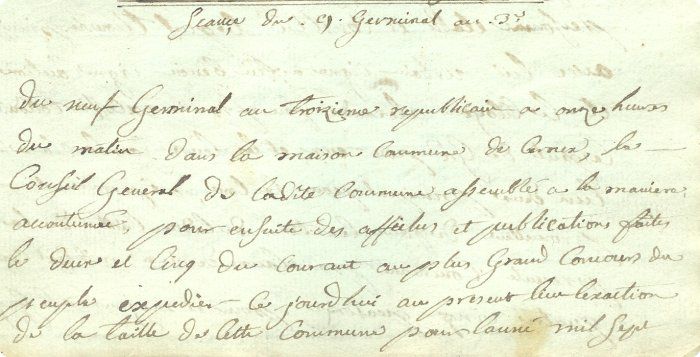 Seance du 9 Germinal an 3e
du neuf Germinal an troizieme republicain a onze heures
du matin dans la maison Commune de Cernex, le
Conseil General de ladite Commune assemblé a la maniere
accoutumée, pour ensuite des affiches et publications faites
le deux et Cinq du Courant au plus Grand Concours du
peuple expedier ce jourdhui au present lieu lexaction
de la taille de cette Commune pour lanné mil sept